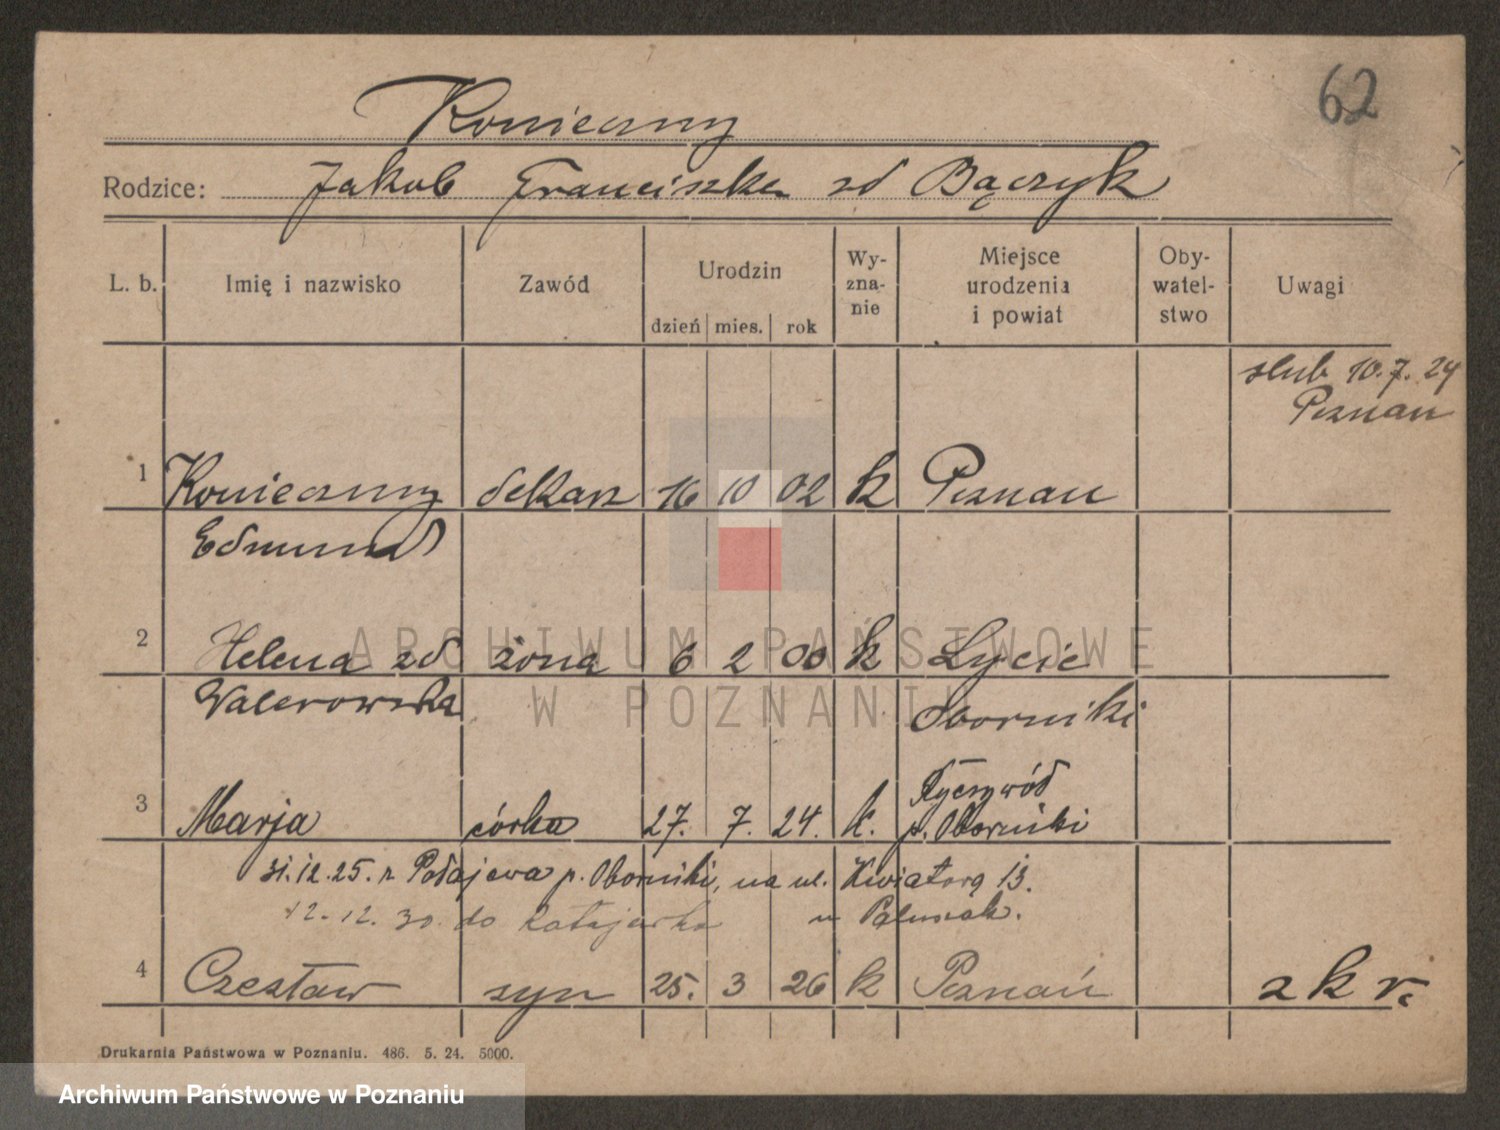 62
Konieczny
Rodzice: Jakob Franciszka zd Bączyk
L. b. Imię i nazwisko Zawód Urodzin Wy-zna-nie Miejsce urodzenia i powiat Oby-watel-stwo Uwagi
dzień mies. rok
slub 10.7.24
Poznan
1 Konieczny dekarz 16 10 02 k Poznan
Edmund
2 Helena zd żona 6 2 00 k
Oborniki
3 Marja córka 27. 7. 24. k. Ryczywół
p. Oborniki
31.12.25. z Połajewa p. Oborniki, na ul. Kwiatową 13.
12.12.30. do u
4 Czesław syn 25. 3 26 k Poznań z k r.
Drukarnia Państwowa w Poznaniu. 486. 5. 24. 5000.
ARCHIWUM PAŃSTWOWE
W POZNANIU
Archiwum Państwowe w Poznaniu